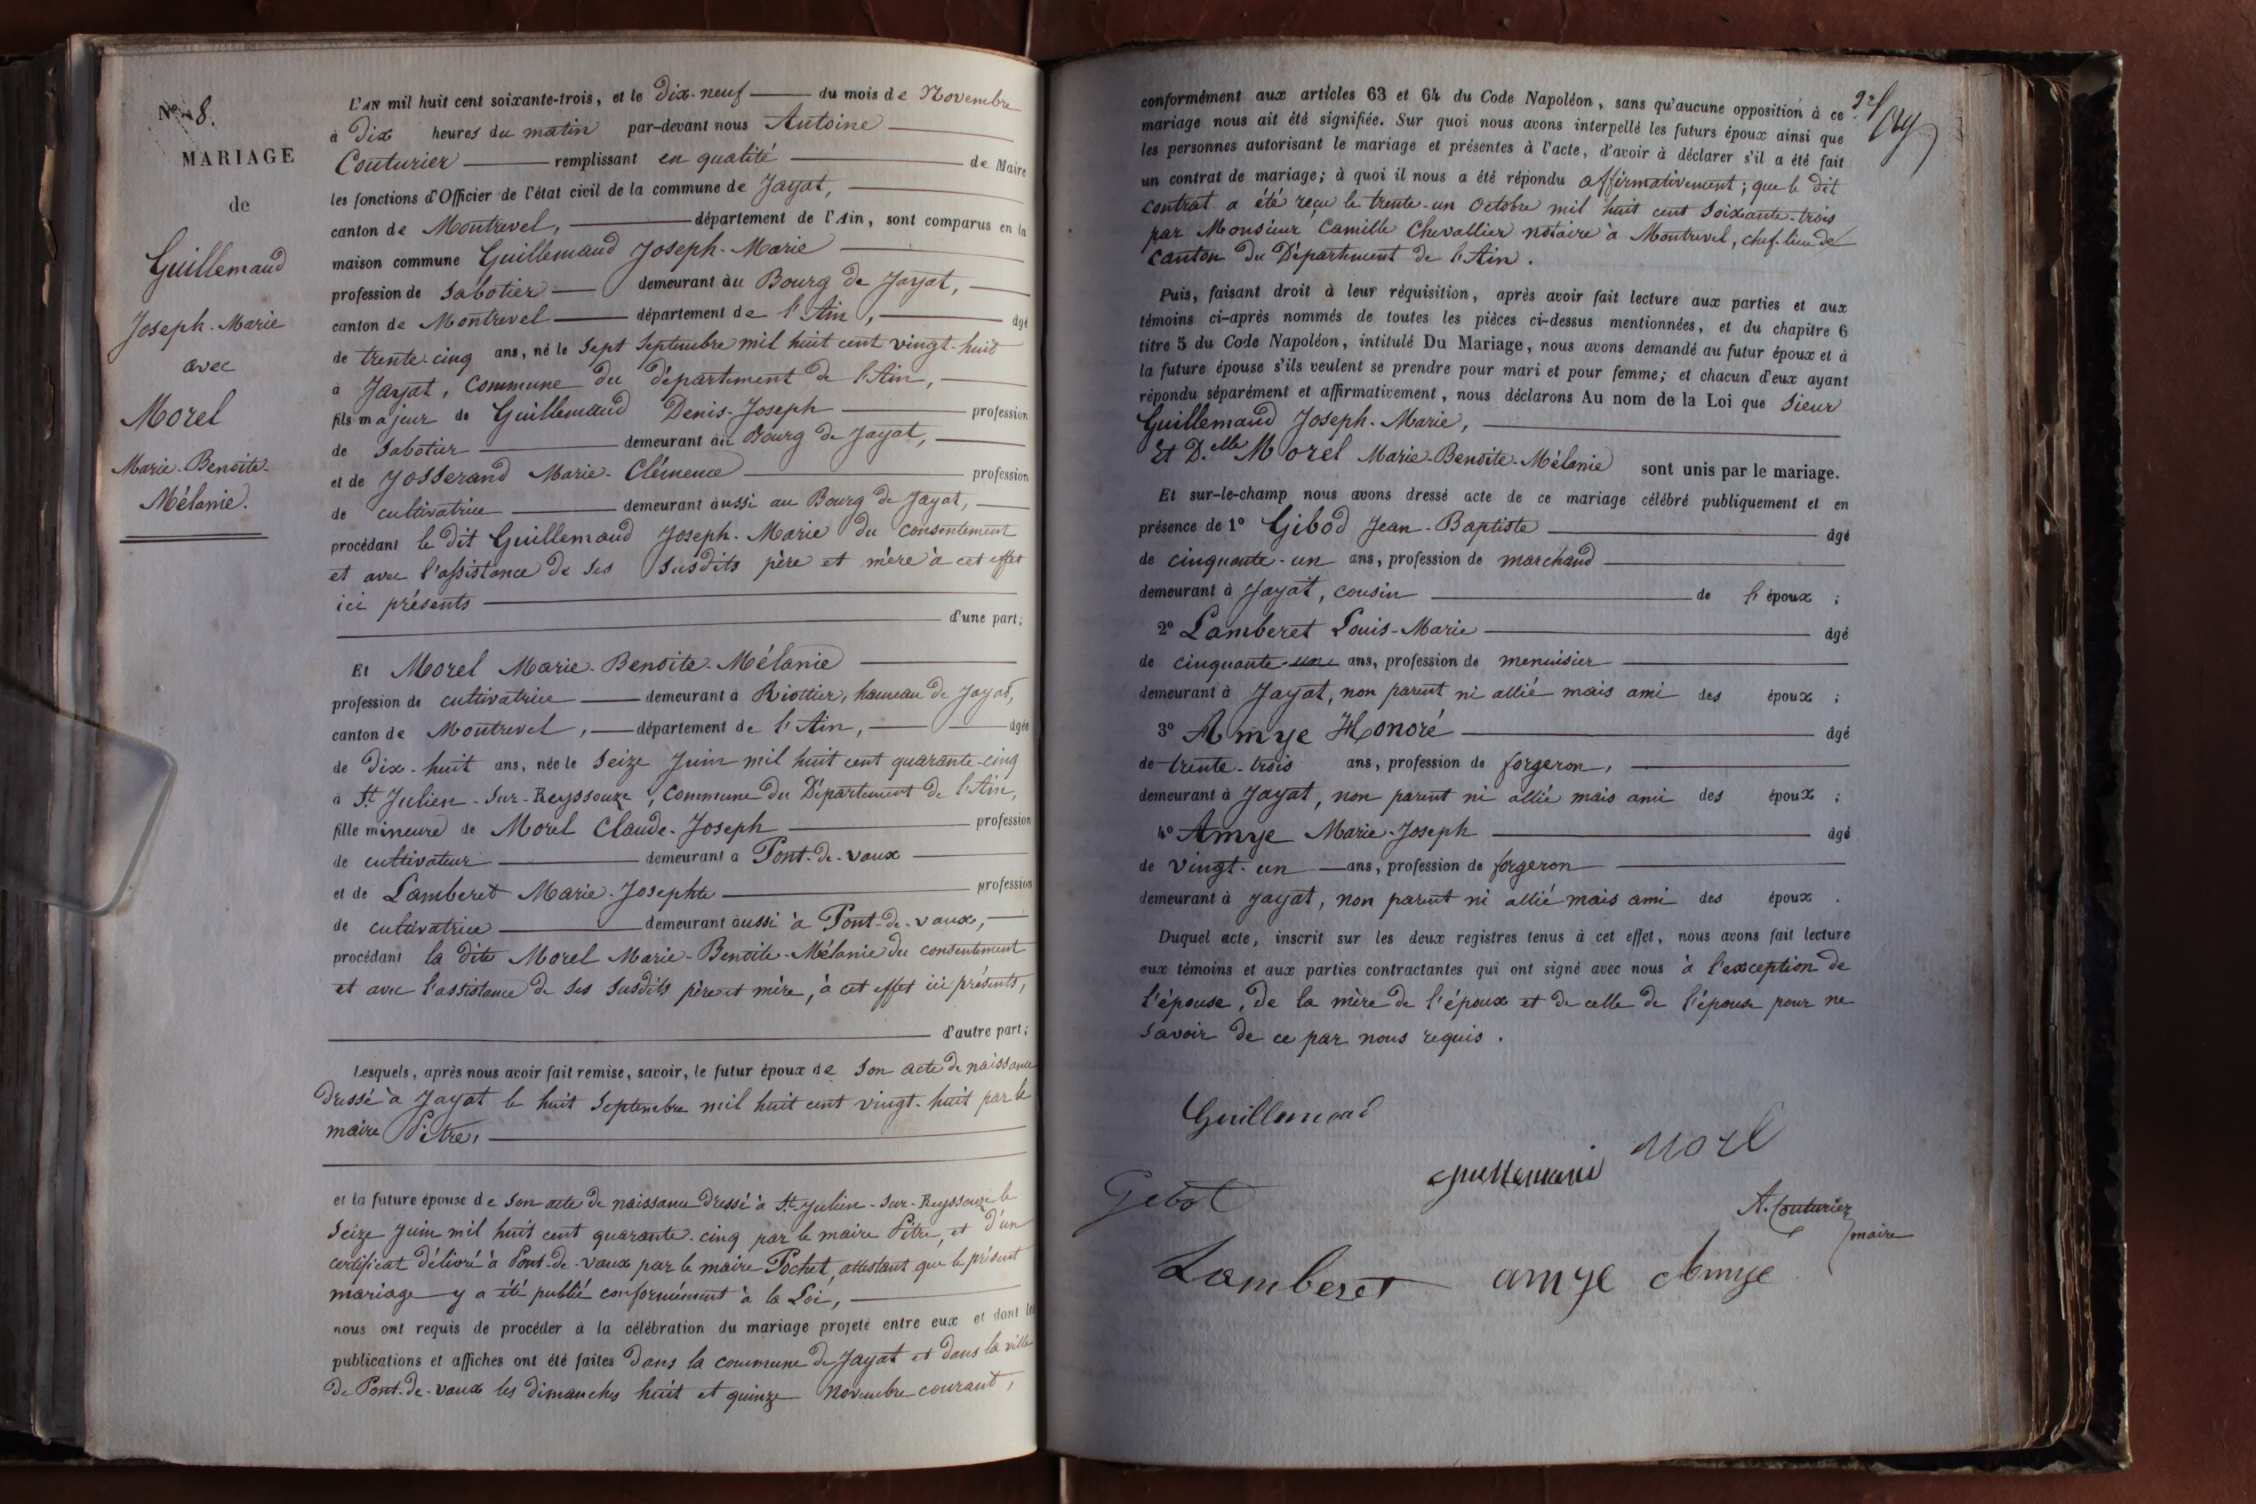 N° 8.
MARIAGE
de
Guillemaud
Joseph-Marie
avec
Morel
Marie-Benoite-
Mélanie.
L'AN mil huit cent soixante-trois, et le dix-neuf du mois de Novembre
à dix heures du matin par-devant nous Antoine
Couturier remplissant en qualité de Maire
les fonctions d'Officier de l'état civil de la commune de Jayat,
canton de Montrevel, département de l'Ain, sont comparus en la
maison commune Guillemaud Joseph-Marie
profession de sabotier demeurant au Bourg de Jayat,
canton de Montrevel département de l'Ain, âgé
de trente-cinq ans, né le sept Septembre mil huit cent vingt-huit
à Jayat, commune du département de l'Ain,
fils majeur de Guillemaud Denis-Joseph profession
de sabotier demeurant au Bourg de Jayat,
et de Josserand Marie-Clémence profession
de cultivatrice demeurant aussi au Bourg de Jayat,
procédant le dit Guillemaud Joseph-Marie du consentement
et avec l'assistance de ses susdits père et mère à cet effet
ici présents
d'une part;
Et Morel Marie-Benoite-Mélanie
profession de cultivatrice demeurant à Riottier, hameau de Jayat,
canton de Montrevel, département de l'Ain, âgée
de dix-huit ans, née le seize Juin mil huit cent quarante-cinq
à St Julien-sur-Reyssouze, commune du Département de l'Ain,
fille mineure de Morel Claude-Joseph profession
de cultivateur demeurant à Pont-de-vaux
et de Lamberet Marie-Josephte profession
de cultivatrice demeurant aussi à Pont-de-vaux,
procédant la dite Morel Marie-Benoite-Mélanie du consentement
et avec l'assistance de ses susdits père et mère, à cet effet ici présents,
d'autre part;
Lesquels, après nous avoir fait remise, savoir, le futur époux de son acte de naissance
dressé à Jayat le huit Septembre mil huit cent vingt-huit par le
maire Pitre,
et la future épouse de son acte de naissance dressé à St Julien-sur-Reyssouze le
seize Juin mil huit cent quarante-cinq par le maire Pitre, et d'un
certificat délivré à Pont-de-vaux par le maire Pochet, attestant que le présent
mariage y a été publié conformément à la Loi,
nous ont requis de procéder à la célébration du mariage projeté entre eux et dont les
publications et affiches ont été faites dans la commune de Jayat et dans la ville
de Pont-de-vaux les dimanches huit et quinze Novembre courant,
conformément aux articles 63 et 64 du Code Napoléon, sans qu'aucune opposition à ce
mariage nous ait été signifiée. Sur quoi nous avons interpellé les futurs époux ainsi que
les personnes autorisant le mariage et présentes à l'acte, d'avoir à déclarer s'il a été fait
un contrat de mariage; à quoi il nous a été répondu affirmativement; que le dit
contrat a été reçu le trente-un Octobre mil huit cent soixante-trois
par Monsieur Camille Chevallier notaire à Montrevel, chef-lieu de
canton du Département de l'Ain.
Puis, faisant droit à leur réquisition, après avoir fait lecture aux parties et aux
témoins ci-après nommés de toutes les pièces ci-dessus mentionnées, et du chapitre 6
titre 5 du Code Napoléon, intitulé Du Mariage, nous avons demandé au futur époux et à
la future épouse s'ils veulent se prendre pour mari et pour femme; et chacun d'eux ayant
répondu séparément et affirmativement, nous déclarons Au nom de la Loi que Sieur
Guillemaud Joseph-Marie,
Et D.elle Morel Marie-Benoite-Mélanie sont unis par le mariage.
Et sur-le-champ nous avons dressé acte de ce mariage célébré publiquement et en
présence de 1° Gibod Jean-Baptiste âgé
de cinquante-un ans, profession de marchand
demeurant à Jayat, cousin de l'époux;
2° Lamberet Louis-Marie âgé
de cinquante ans, profession de menuisier
demeurant à Jayat, non parent ni allié mais ami des époux;
3° Amye Honoré âgé
de trente-trois ans, profession de forgeron,
demeurant à Jayat, non parent ni allié mais ami des époux;
4° Amye Marie-Joseph âgé
de vingt-un ans, profession de forgeron
demeurant à Jayat, non parent ni allié mais ami des époux.
Duquel acte, inscrit sur les deux registres tenus à cet effet, nous avons fait lecture
aux témoins et aux parties contractantes qui ont signé avec nous à l'exception de
l'épouse, de la mère de l'époux et de celle de l'épouse pour ne
savoir de ce par nous requis.
Guillemaud
Guillemaud Morel
Gibot
A. Couturier
maire
Lamberet amye Amye